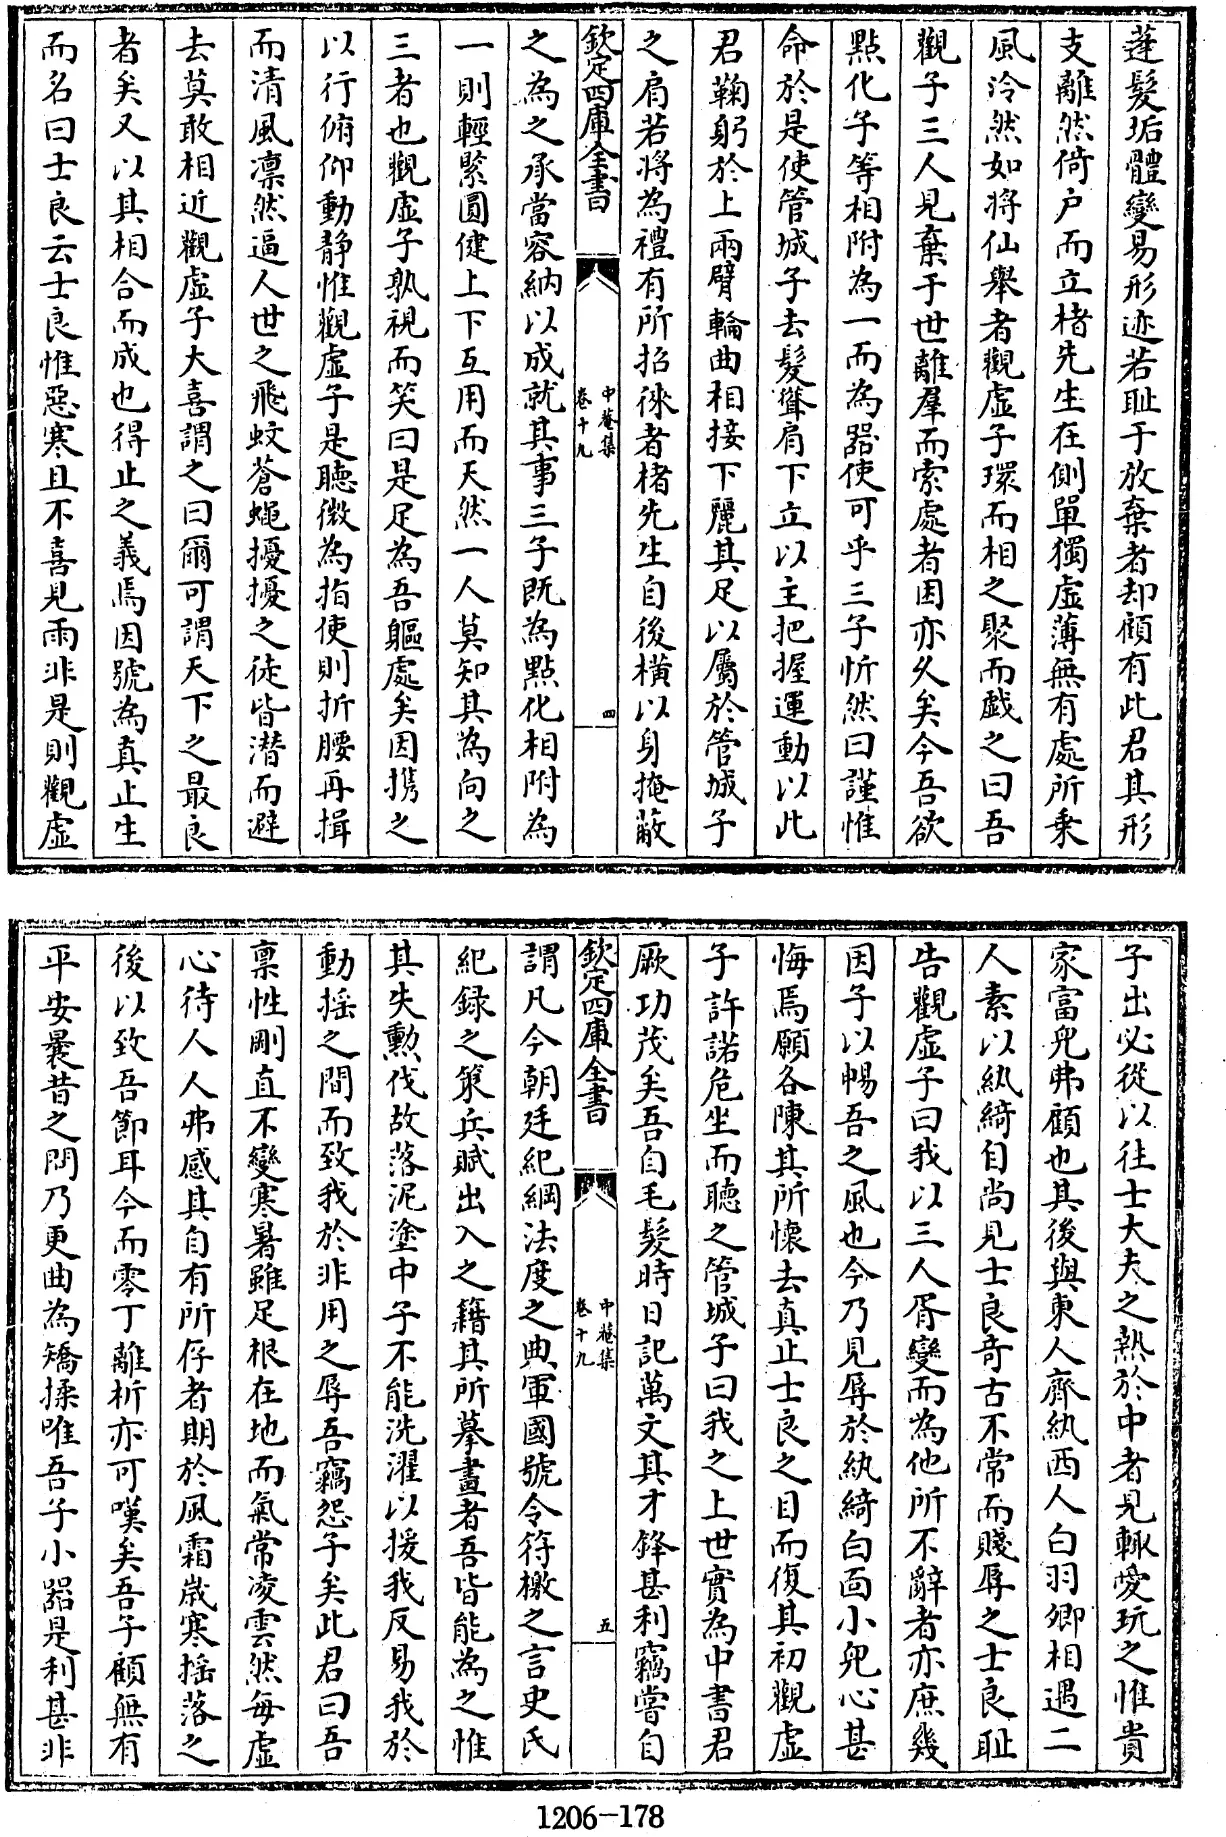 蓬髮垢體變易形迹若恥于放棄者却顧有此君其形
支離然倚户而立楮先生在側單獨虚薄無有處所乗
風泠然如将仙舉者觀虚子環而相之聚而戲之曰吾
觀子三人見棄于世離羣而索處者因亦久矣今吾欲
點化子等相附為一而為器使可乎三子忻然曰謹惟
命於是使管城子去髮聳肩下立以主把握運動以此
君鞠躬於上兩臂輪曲相接下麗其足以屬於管城子
之肩若将為禮有所招徠者楮先生自後横以身掩蔽
欽定四庫全書
中菴集
卷十九
四
之為之承當容納以成就其事三子既為點化相附為
一則輕緊圓健上下互用而天然一人莫知其為向之
三者也觀虚子孰視而笑曰是足為吾軀處矣因攜之
以行俯仰動静惟觀虚子是聽微為指使則折腰再揖
而清風凛然逼人世之飛蚊蒼蠅擾擾之徒皆潜而避
去莫敢相近觀虚子大喜謂之曰爾可謂天下之最良
者矣又以其相合而成也得止之義焉因號為真止生
而名曰士良云士良惟惡寒且不喜見雨非是則觀虚
子出必從以往士大夫之熱於中者見輙愛玩之惟貴
家富兒弗顧也其後與東人齊紈西人白羽卿相遇二
人素以紈綺自尚見士良奇古不常而賤辱之士良恥
告觀虚子曰我以三人胥變而為他所不辭者亦庶幾
因子以暢吾之風也今乃見辱於紈綺白面小兒心甚
悔焉願各陳其所懷去真止士良之目而復其初觀虚
子許諾危坐而聽之管城子曰我之上世實為中書君
厥功茂矣吾自毛髮時日記萬文其才鋒甚利竊嘗自
欽定四庫全書
中菴集
卷十九
五
謂凡今朝廷紀綱法度之典軍國號令符檄之言史氏
紀録之策兵賦出入之籍其所摹畫者吾皆能為之惟
其失勲伐故落泥塗中子不能洗濯以援我反易我於
動揺之間而致我於非用之辱吾竊怨子矣此君曰吾
禀性剛直不變寒暑雖足根在地而氣常凌雲然每虚
心待人人弗感其自有所存者期於風霜歳寒揺落之
後以致吾節耳今而零丁離析亦可嘆矣吾子顧無有
平安曩昔之問乃更曲為矯揉唯吾子小器是利甚非
1206-178